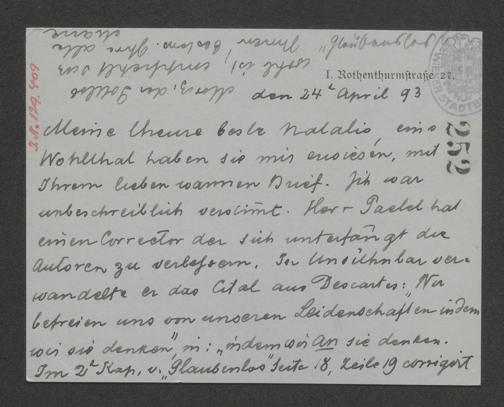 I. Rothenthurmstraße 27.
den 24t April 93
Meine theure beste Natalie, eine
Wohlthat haben sie mir erwiesen, mit
Ihrem lieben warmen Brief. Ich war
unbeschreiblich verstimt. Herr Paetel hat
einen Corrector der sich unterfängt die
Autoren zu verbessern. In Unsühnbar ver-
wandelte er das Citat aus Descartes: "Wir
befreien uns von unseren Leidenschaften indem
wir sie denken", in: "indem wir an sie denken.
Im 2t Kap. v. "Glaubenlos" Seite 18, Zeile 19 corrigirt
"Glaubenslos
wohl ist, empfiehlt sich
Ihnen, . Ihre alte
Marie
252